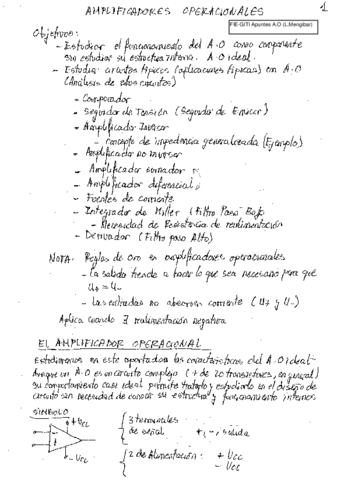 AMPLIFICADORES OPERACIONALES
1
FIE-GITI Apuntes A.O (L.Mengibar)
Objetivos:
- Estudiar el funcionamiento del A.O como componente
sin estudiar su estructura interna. A.O ideal.
- Estudiar circuitos típicos (aplicaciones típicas) con A.O
(Análisis de esos circuitos)
- Comparador
- Seguidor de Tensión (Seguidor de Emisor)
- Amplificador Inversor
- concepto de impedancia generalizada (Ejemplo)
- Amplificador no inversor
- Amplificador sumador
- Amplificador diferencial
- Fuentes de corriente
- Integrador de Miller (Filtro Paso Bajo)
- Necesidad de Resistencia de realimentación
- Derivador (Filtro paso Alto)
NOTA: Reglas de oro en amplificadores operacionales
- La salida tiende a hacer lo que sea necesario para que
U+ = U-
- Las entradas no absorben corriente (U+ y U-)
Aplica cuando ∃ realimentación negativa
EL AMPLIFICADOR OPERACIONAL
Estudiaremos en este apartado las características del A.O ideal.
Aunque un A.O es un circuito complejo (+ de 20 transistores, en general)
su comportamiento casi ideal permite tratarlo y estudiarlo en el diseño de
circuito sin necesidad de conocer su estructura y funcionamiento internos
SIMBOLO
+Vcc
-Vcc
3 terminales
de señal
+, -, salida
2 de Alimentación: + Vcc
- Vcc